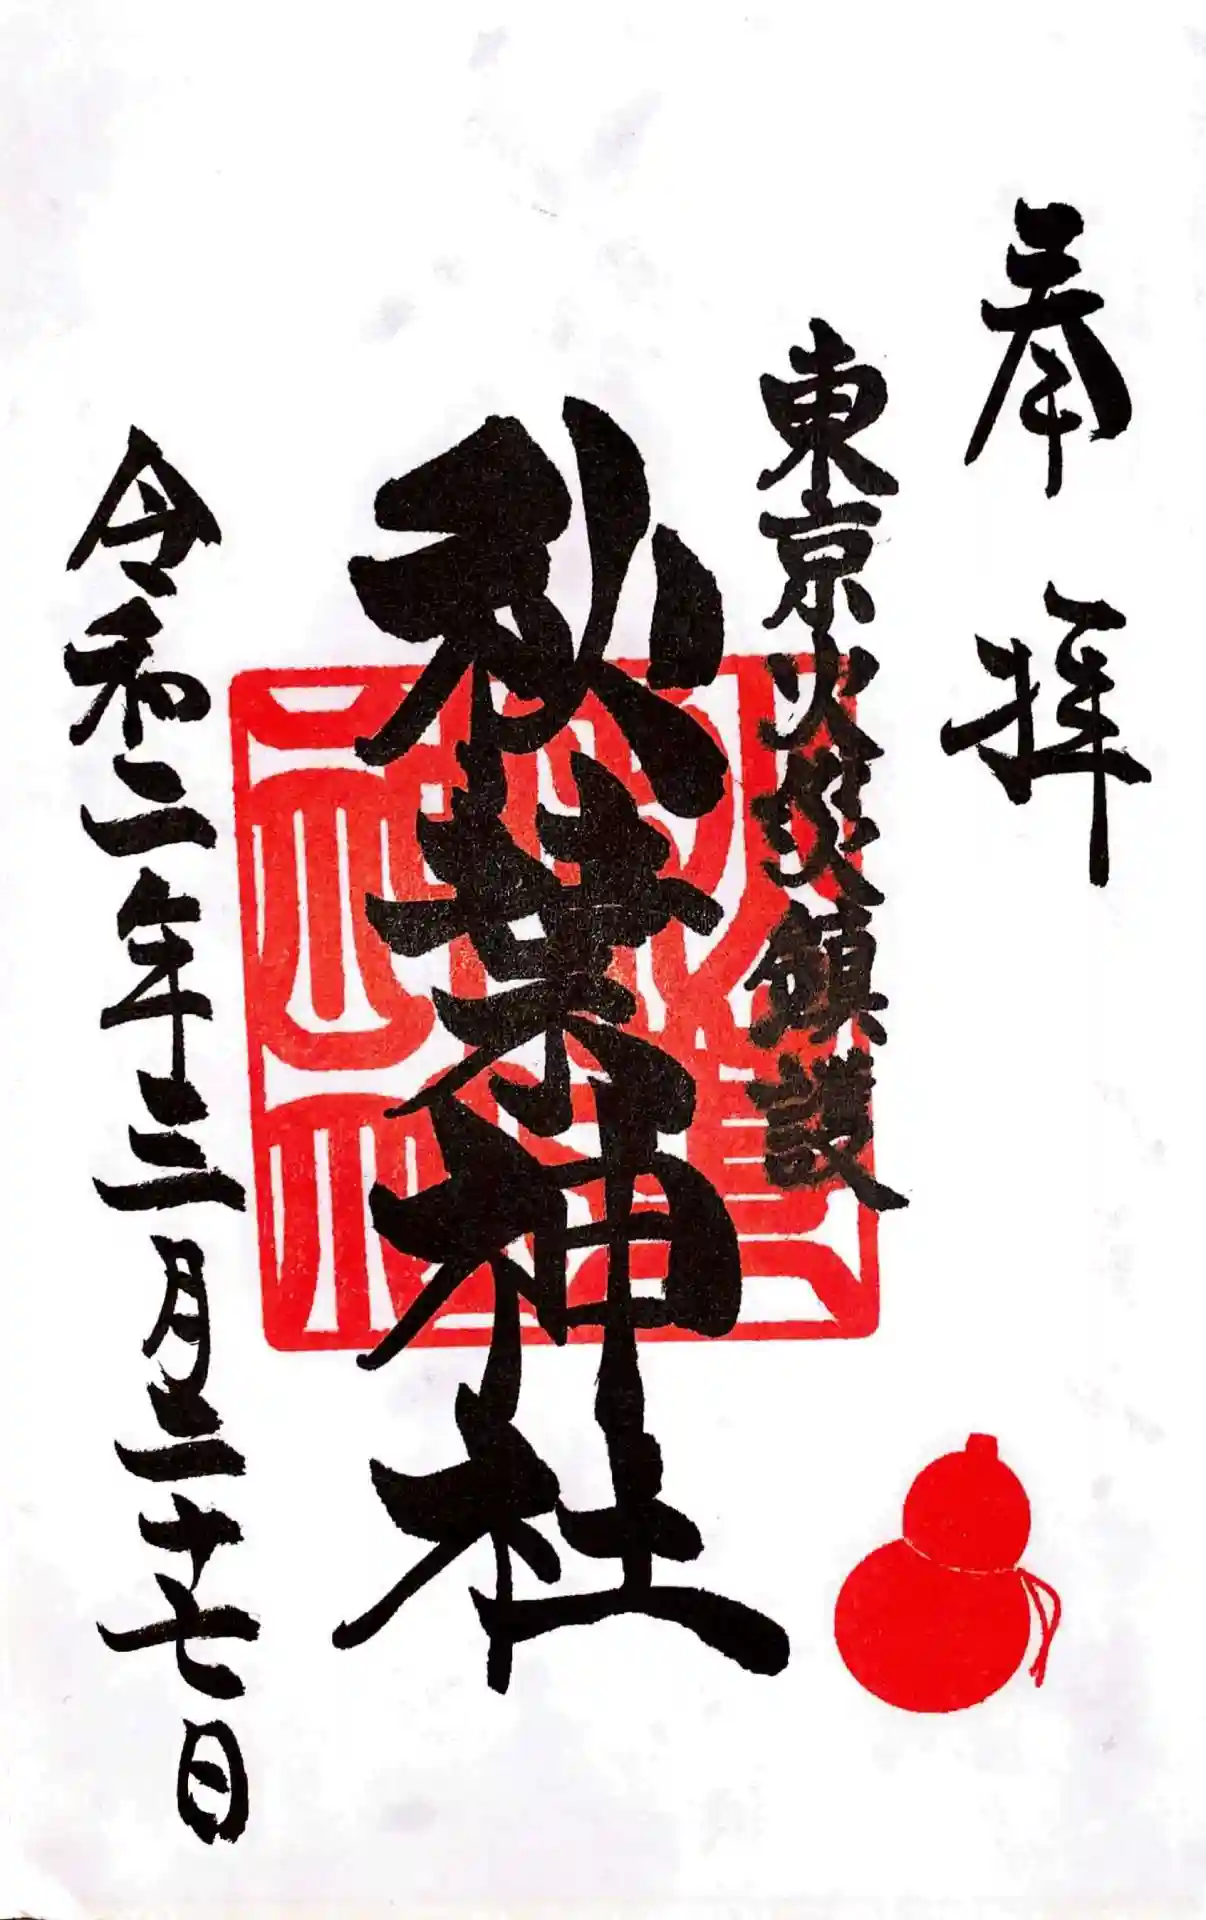 奉拝
東京火災鎮護
秋葉神社
令和二年三月二十七日